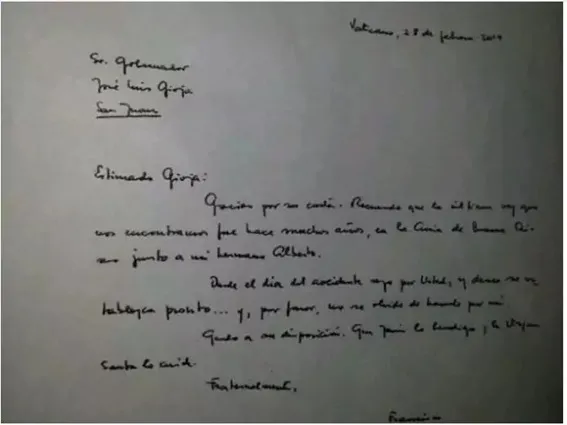 Vaticano, 28 de febrero 2014
Sr. Gobernador
José Luis Gioja
San Juan
Estimado Gioja:
Gracias por su carta. Recuerdo que la última vez que
nos encontramos fue hace muchos años, en la Curia de Buenos Ai-
res junto a mi hermano Alberto.
Desde el día del accidente rezo por Usted, y deseo se res-
tablezca pronto... y, por favor, no se olvide de hacerlo por mí
Quedo a su disposición. Que Jesús lo bendiga y la Virgen
Santa lo cuide.
Fraternalmente,
Francisco